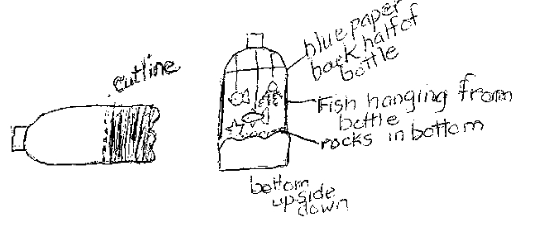 cutline
blue paper
back half of
bottle
Fish hanging from
bottle
rocks in bottom
bottom
upside
down